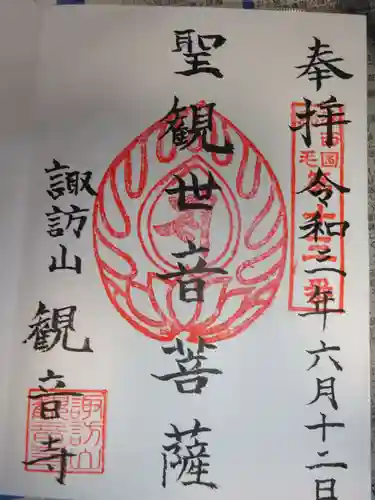 奉拝
令和三年六月十二日
聖観世音菩薩
諏訪山
観音寺
諏訪山
観音寺